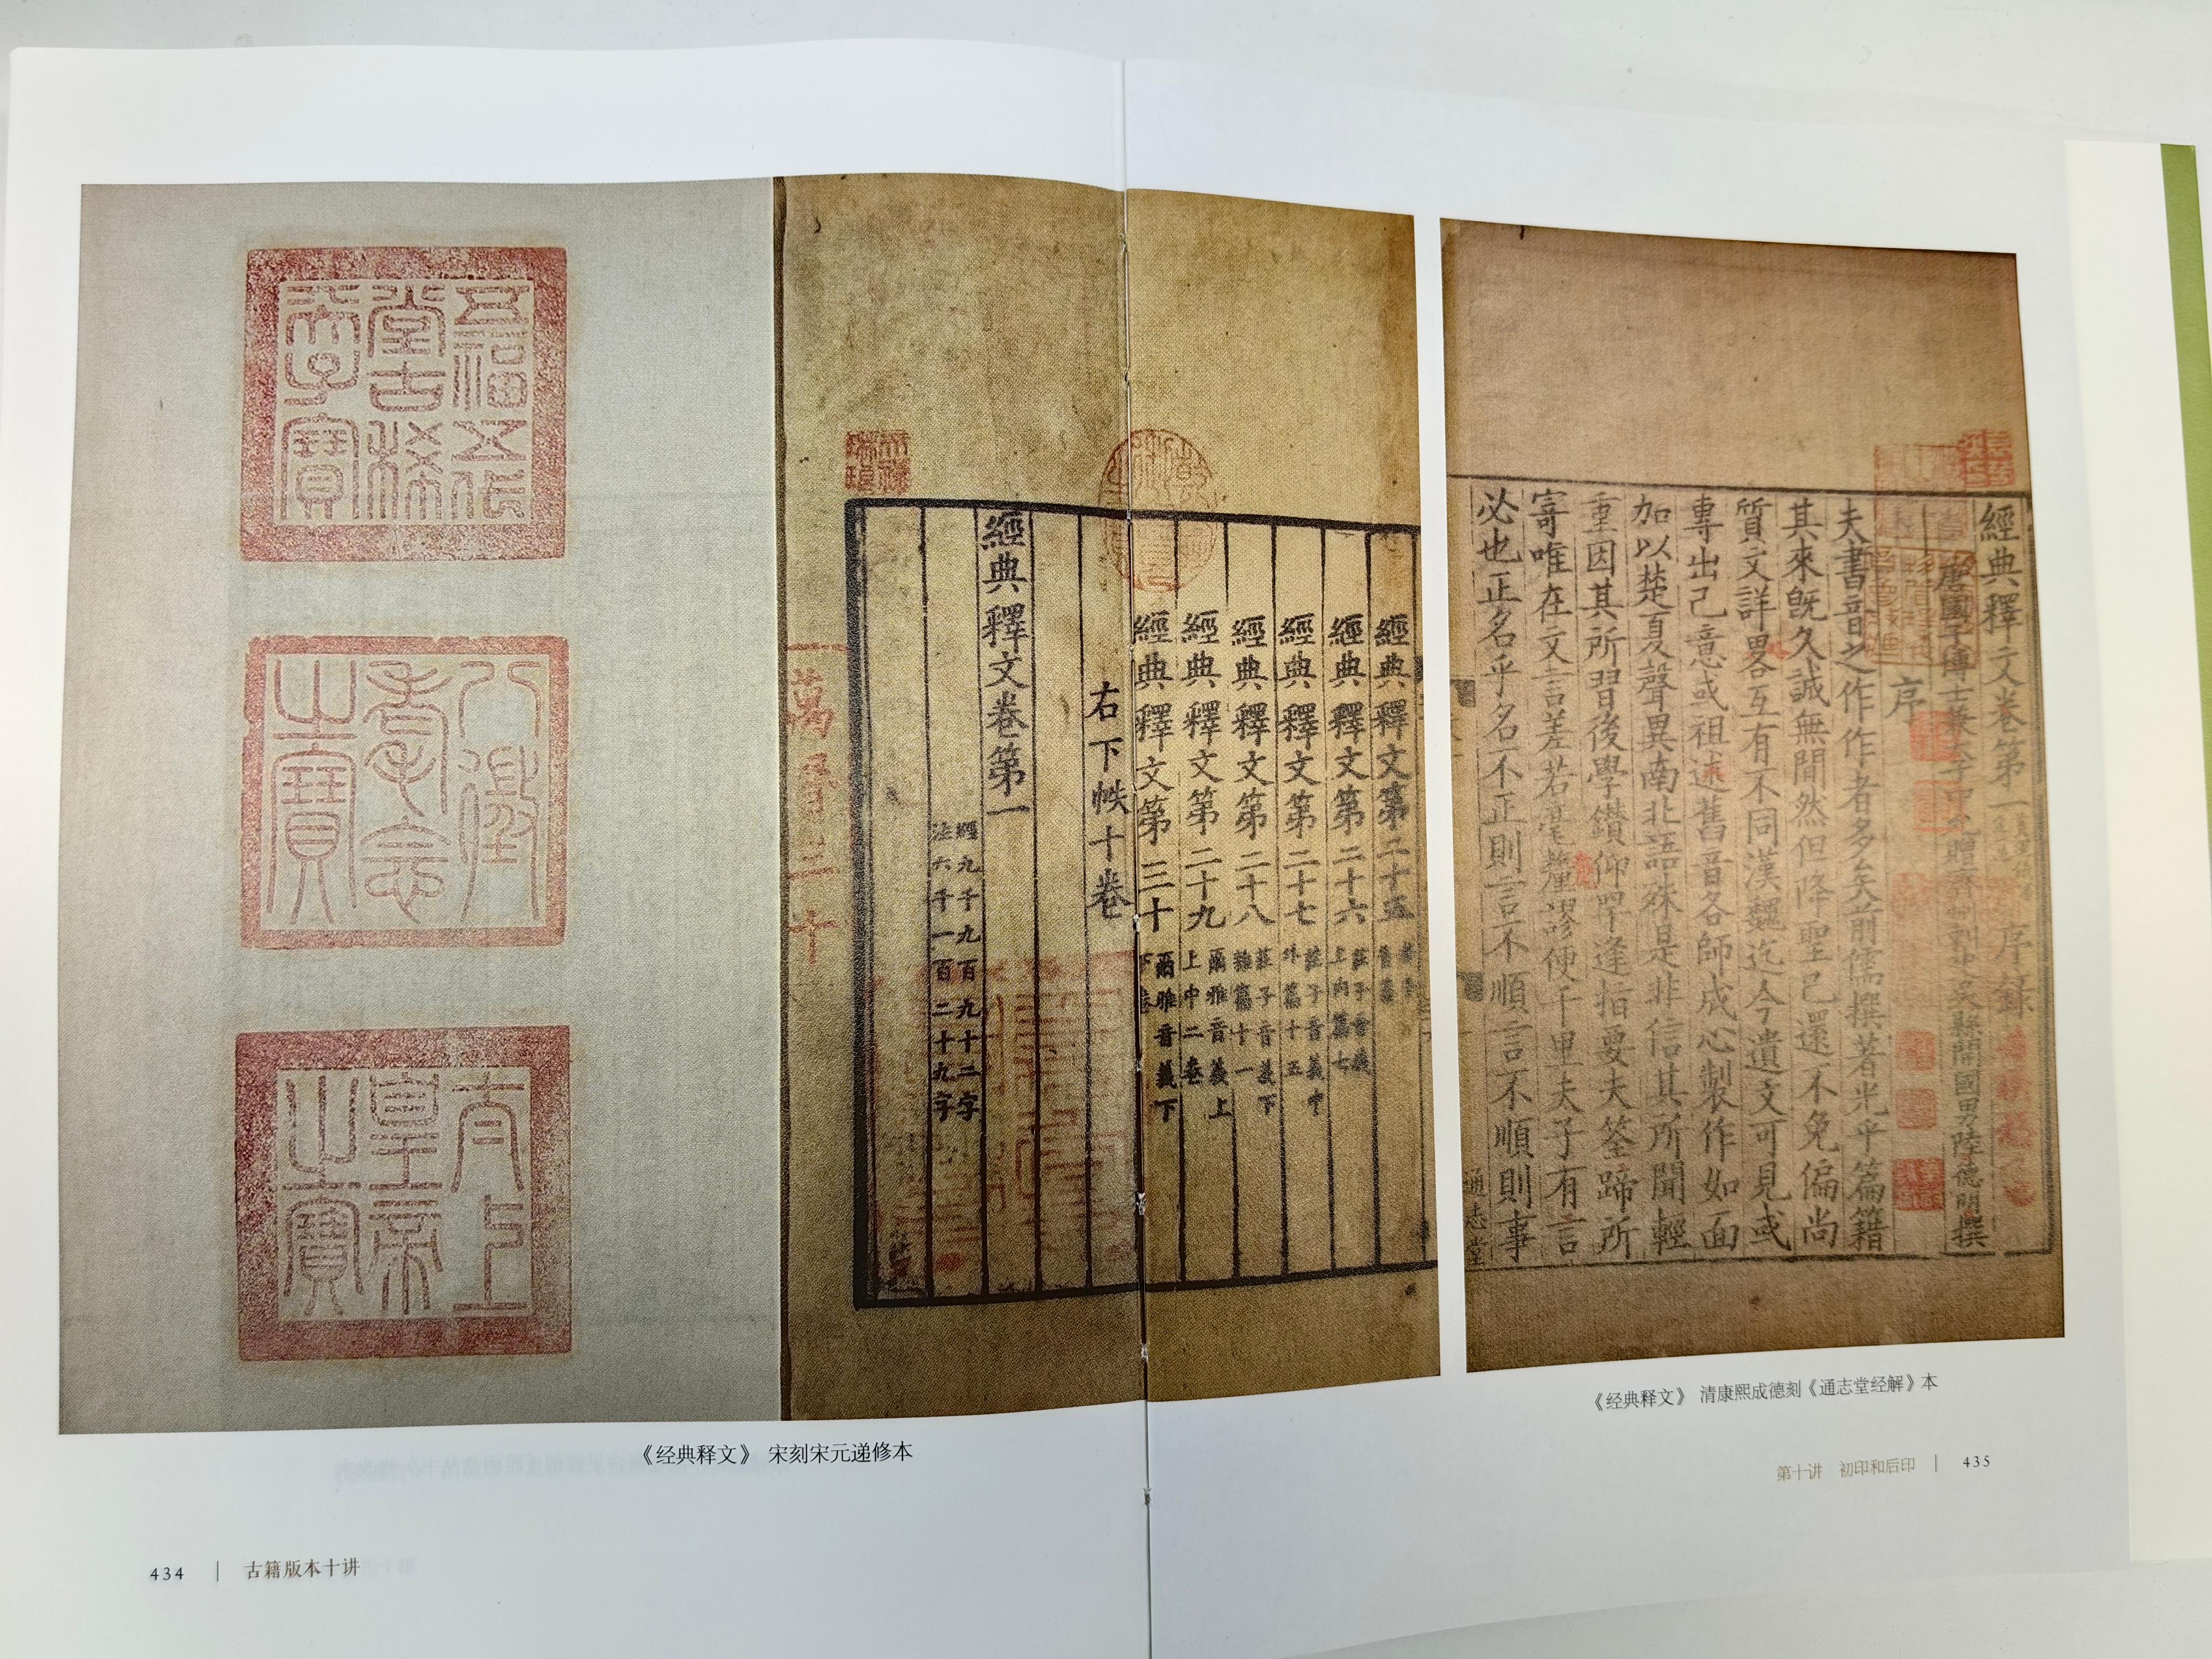 五福五代
堂古稀
天子寶
八徵
耄念
之寶
太上
皇帝
之寶
天祿
琳琅
經典釋文第二十五
經典釋文第二十六 莊子音義
上内篇七
經典釋文第二十七 莊子音義中
外篇十五
經典釋文第二十八 莊子音義下
雜篇十一
經典釋文第二十九 爾雅音義上
上中二卷
經典釋文第三十 爾雅音義下
下卷
右下帙十卷
經典釋文卷第一
經九千九百九十二字
注六千一百二十九字
《经典释文》 宋刻宋元递修本
434 | 古籍版本十讲
經典釋文卷第一 序錄
唐國子博士兼太子中允贈齊州刺史吳縣開國男陸德明撰
序
夫書音之作作者多矣前儒撰著光乎篇籍
其來既久誠無間然但降聖已還不免偏尚
質文詳畧互有不同漢魏迄今遺文可見或
專出己意或祖述舊音各師成心製作如面
加以楚夏聲異南北語殊是非信其所聞輕
重因其所習後學鑽仰罕逢指要夫筌蹄所
寄唯在文言差若毫釐謬便千里夫子有言
必也正名乎名不正則言不順言不順則事
通志堂
《经典释文》 清康熙成德刻《通志堂经解》本
第十讲 初印和后印 | 435